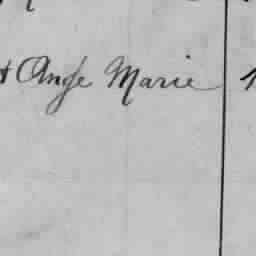 Ange Marie